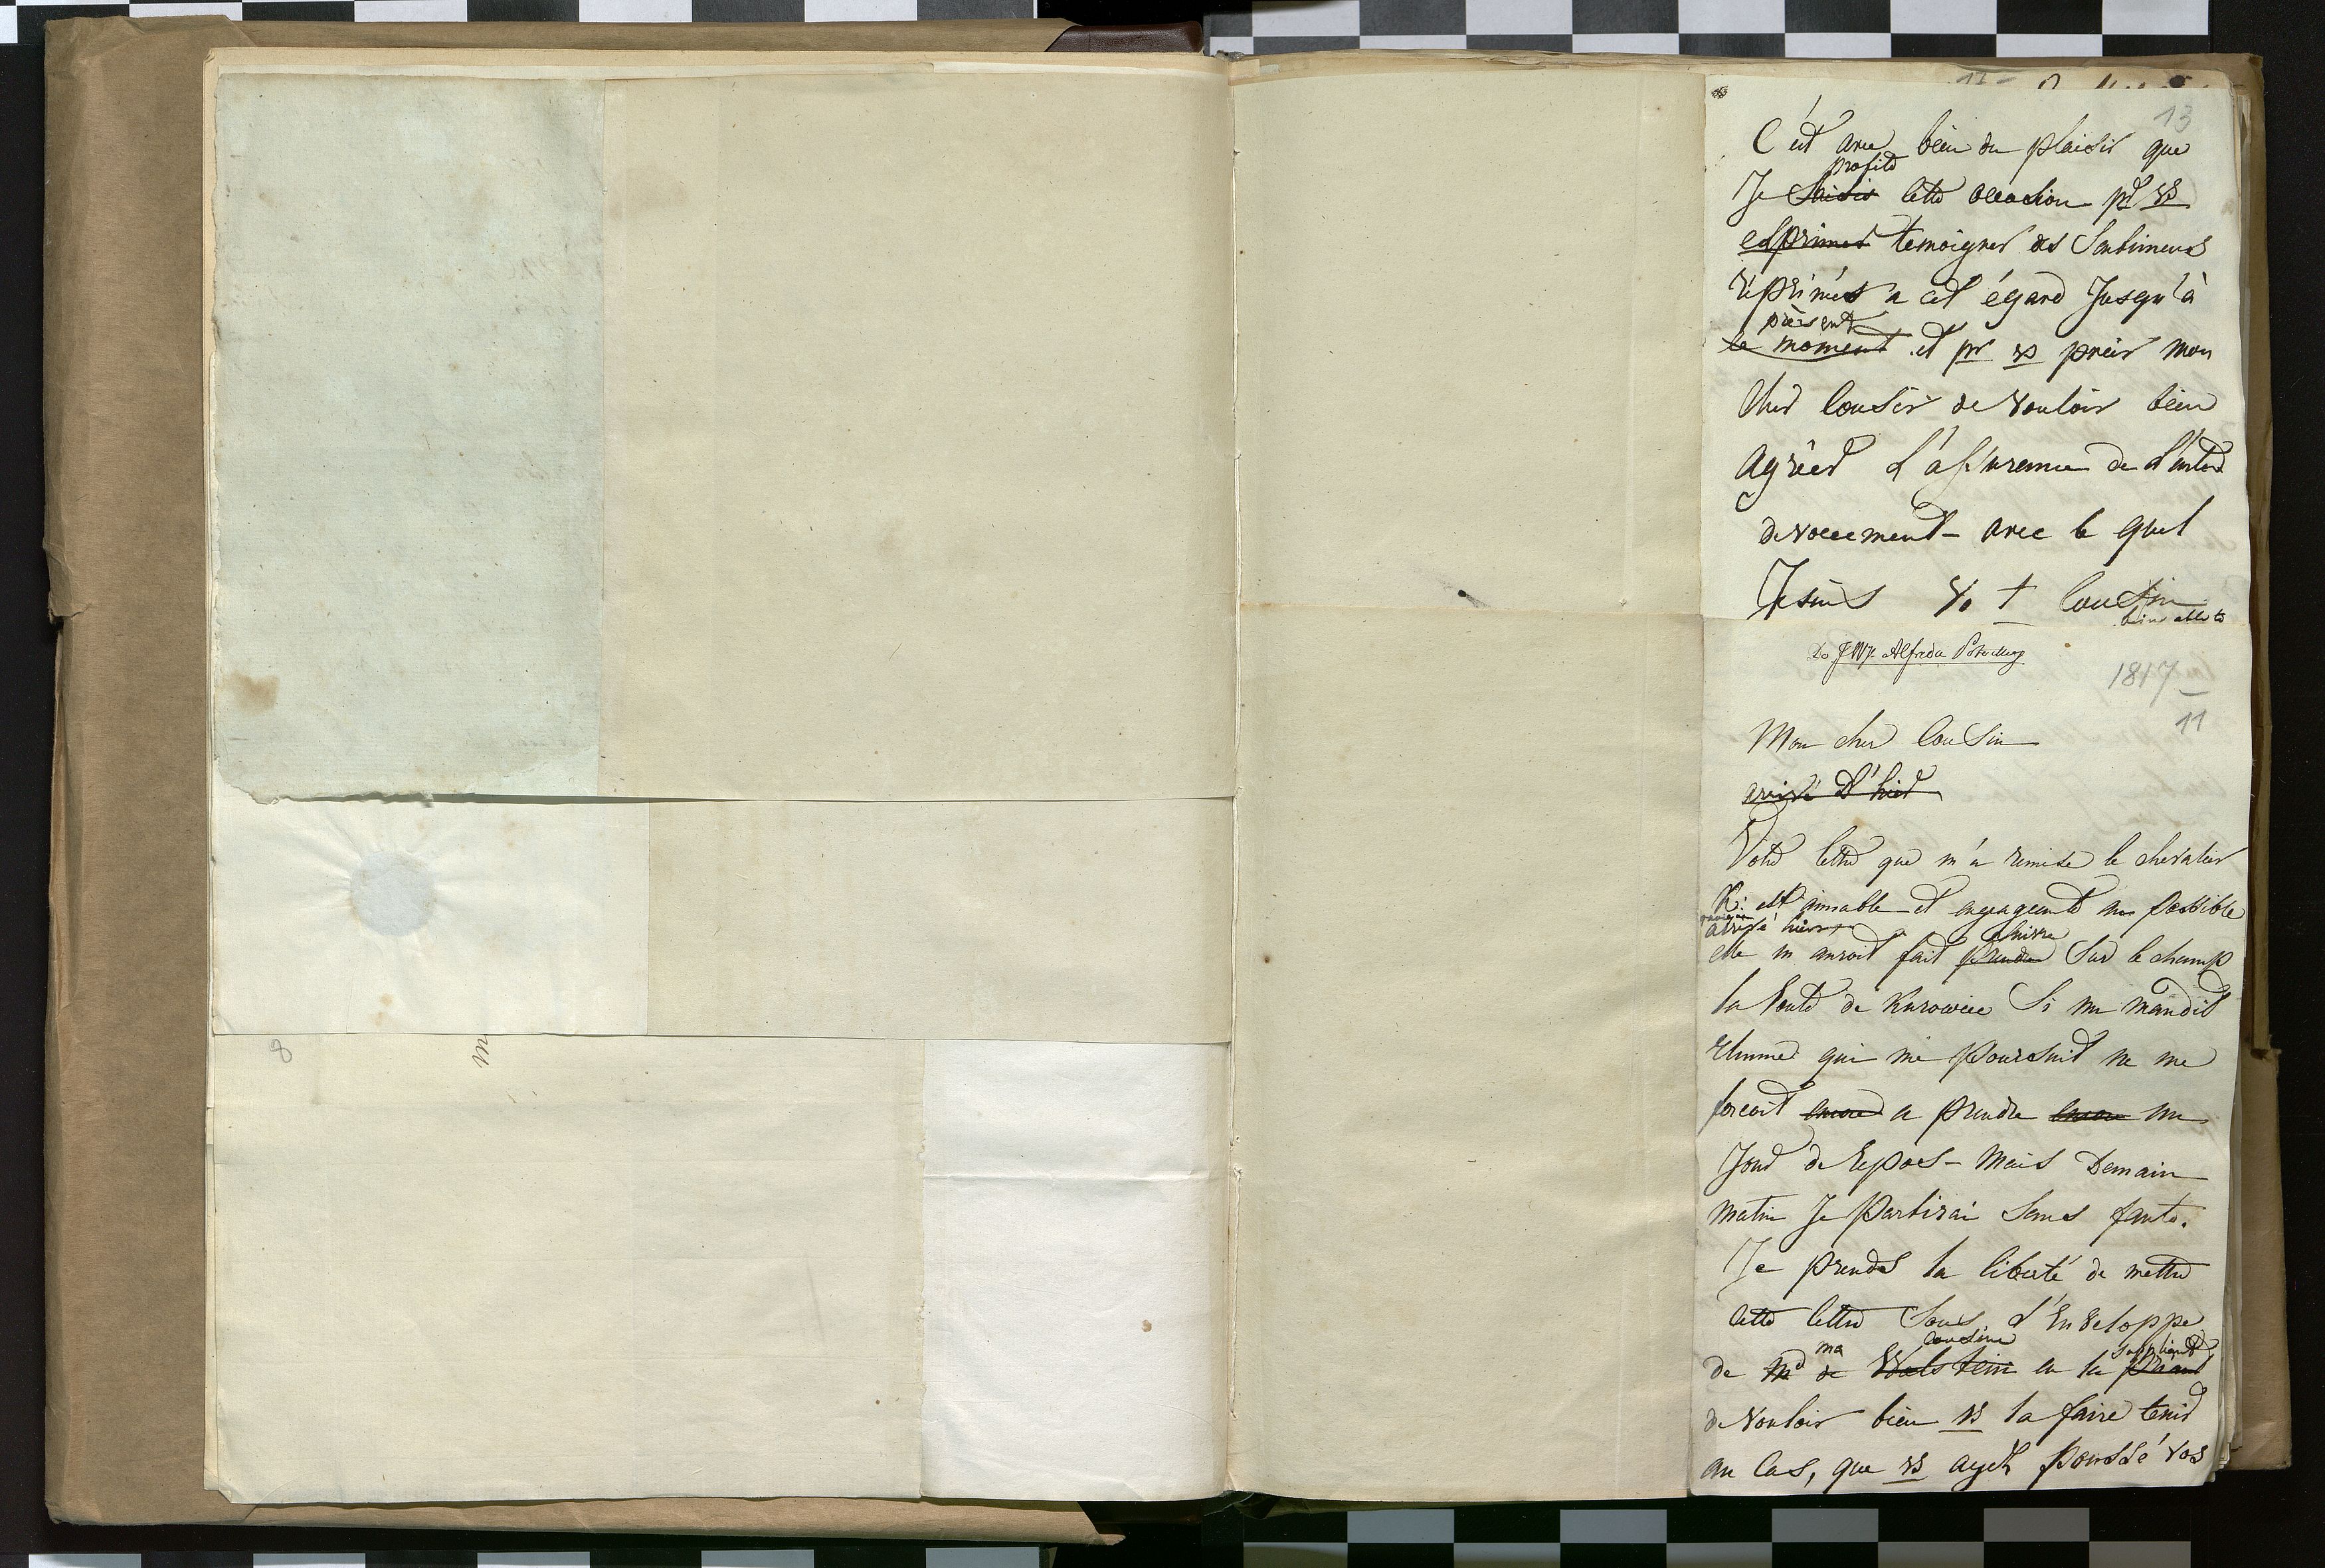 8
m
13
C'est avec bien du plaisir que
profite
Je saisis cette occasion pr vs
exprimer temoigner des sentimens
réprimés a cet égard jusqu'à
présent
le moment et pr vs prier mon
cher cousin de vouloir bien
agréer l'assurance de l'entier
devouement - avec le quel
Je suis V. t cousin
Do JW Alfreda Potockiego
1817
11
Mon cher Cousin
arrivé d'hier
Votre lettre que m'a remise le chevalier
K: est aimable et engageante au possible
arrivé hier
suivre
elle m auroit fait prendre sur le champ
la route de Kurowice si un maudit
rhume qui me poursuit ne me
forcoit encore a prendre encore un
jour de repos - mais Demain
matin je partirai sans faute.
Je prends la liberté de mettre
cette lettre sous l'enveloppe
ma cousine suppliant
de Md de Walstein en la priant
de vouloir bien vs la faire tenir
au cas, que vs ayez poussé vos